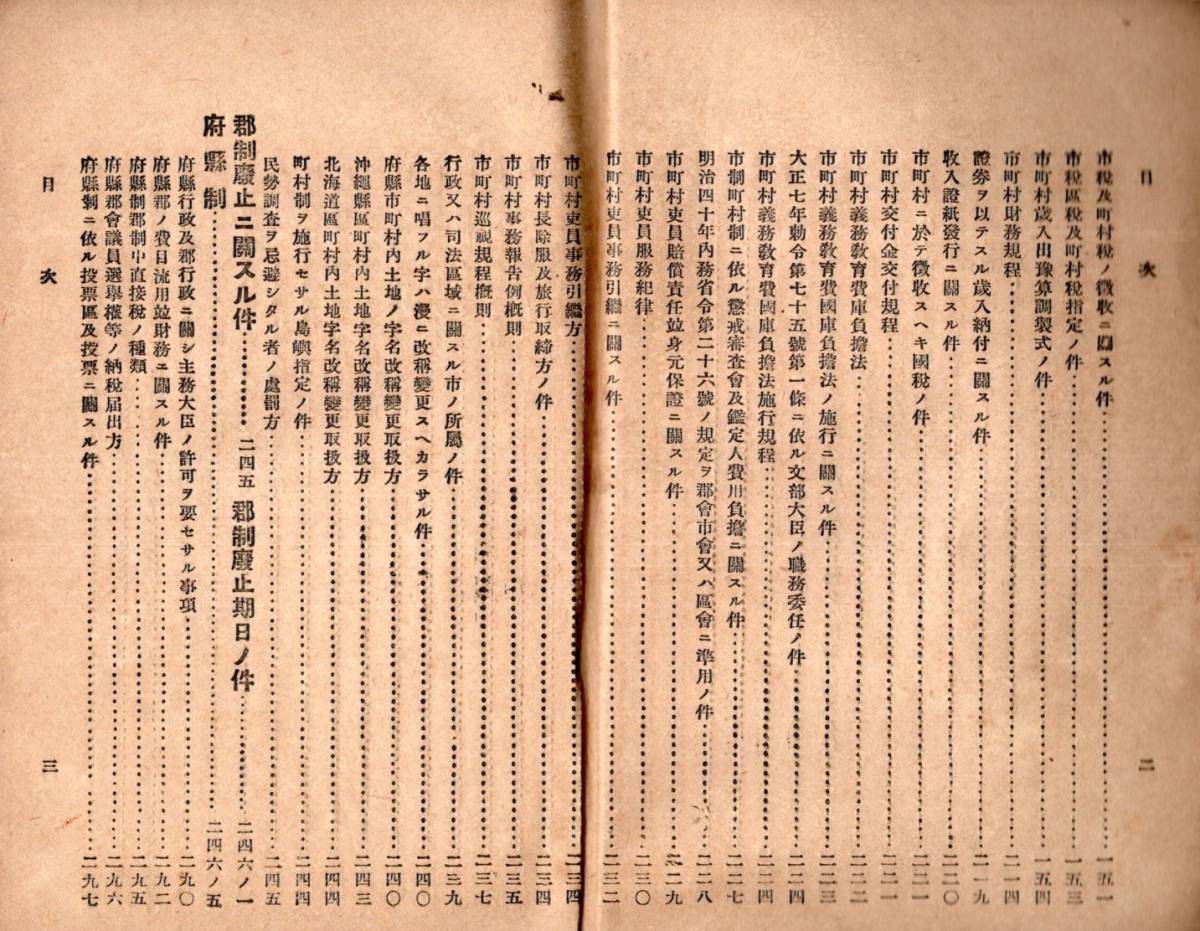 目次 二
市税及町村税ノ徴收ニ關スル件 一五一
市税區税及町村税指定ノ件 一五三
市町村歳入出豫算調製式ノ件 一五四
市町村財務規程 二一四
證券ヲ以テスル歳入納付ニ關スル件 二一九
收入證紙發行ニ關スル件 二二〇
市町村ニ於テ徴收スヘキ國税ノ件 二二一
市町村交付金交付規程 二二一
市町村義務敎育費國庫負擔法 二二二
市町村義務敎育費國庫負擔法ノ施行ニ關スル件 二二三
大正七年勅令第七十五號第一條ニ依ル文部大臣ノ職務委任ノ件 二二四
市町村義務敎育費國庫負擔法施行規程 二二四
市制町村制ニ依ル懲戒審査會及鑑定人費用負擔ニ關スル件 二二七
明治四十年內務省令第二十六號ノ規定ヲ郡會市會又ハ區會ニ準用ノ件 二二八
市町村吏員賠償責任竝身元保證ニ關スル件 二二九
市町村吏員服務紀律 二三〇
市町村吏員事務引繼ニ關スル件 二三二
市町村吏員事務引繼方 二三四
市町村長除服及旅行取締方ノ件 二三四
市町村事務報告例槪則 二三五
市町村巡視規程槪則 二三七
行政又ハ司法區域ニ關スル市ノ所屬ノ件 二三九
各地ニ唱フル字ハ漫ニ改稱變更スヘカラサル件 二四〇
府縣市町村內土地ノ字名改稱變更取扱方 二四〇
沖繩縣區町村內土地字名改稱變更取扱方 二四三
北海道區町村內土地字名改稱變更取扱方 二四四
町村制ヲ施行セサル島嶼指定ノ件 二四四
民勢調査ヲ忌避シタル者ノ處罰方 二四五
郡制廢止ニ關スル件 二四五 郡制廢止期日ノ件 二四六ノ一
府縣制 二四六ノ五
府縣行政及郡行政ニ關シ主務大臣ノ許可ヲ要セサル事項 二九〇
府縣郡ノ費目流用竝財務ニ關スル件 二九二
府縣制郡制中直接税ノ種類 二九五
府縣郡會議員選擧權等ノ納税届出方 二九六
府縣制ニ依ル投票區及投票ニ關スル件 二九七
目次 三